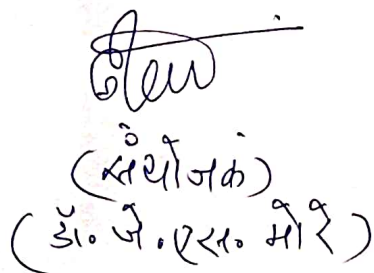 (संयोजक)
(डॉ. जे. एस. मोरे)